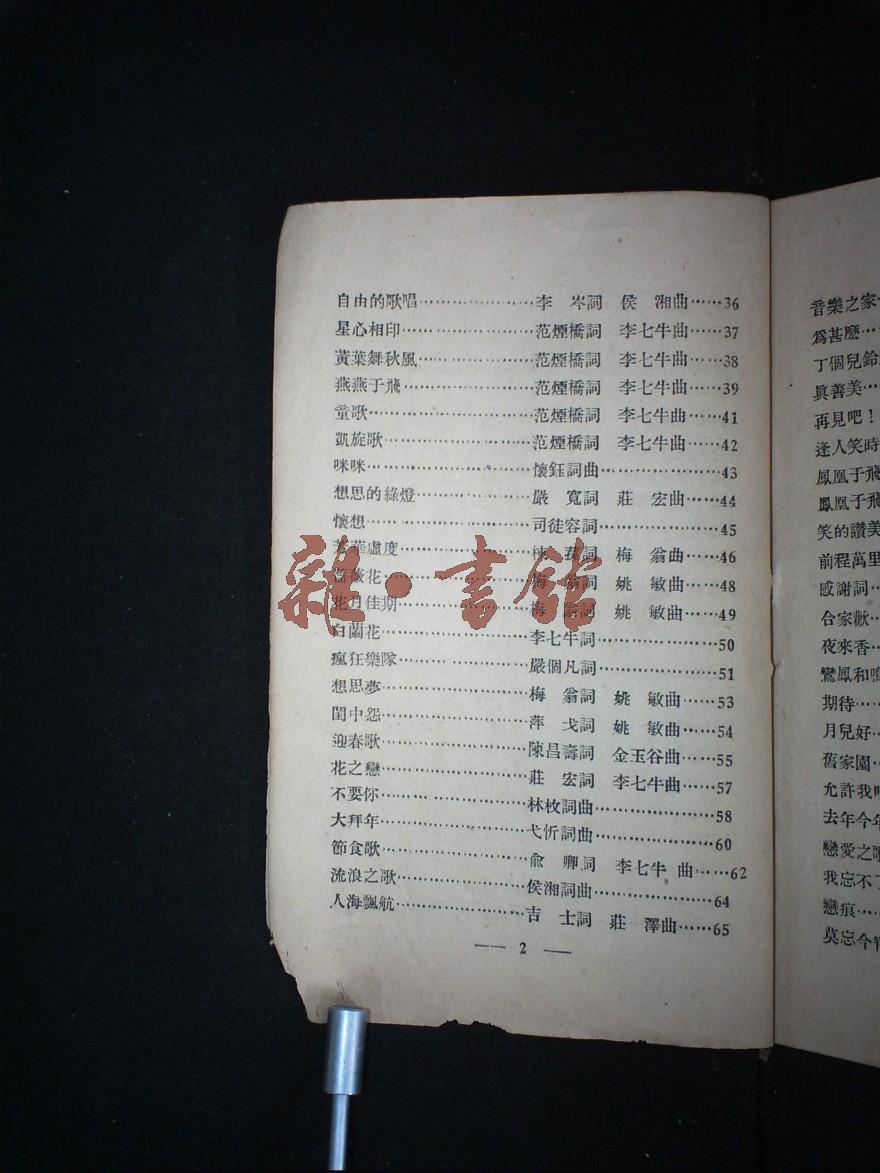 自由的歌唱………………李　岑詞　侯　湘曲……36
星心相印…………………范煙橋詞　李七牛曲……37
黃葉舞秋風………………范煙橋詞　李七牛曲……38
燕燕于飛…………………范煙橋詞　李七牛曲……39
童歌………………………范煙橋詞　李七牛曲……41
凱旋歌……………………范煙橋詞　李七牛曲……42
咪咪………………………懷鈺詞曲…………………43
想思的綠燈………………嚴　寬詞　莊　宏曲……44
懷想………………………司徒容詞…………………45
華虛度……………………詞　梅　翁曲……46
薇花………………………梅　翁詞　姚　敏曲……48
花月佳期…………………梅　翁詞　姚　敏曲……49
白蘭花……………………李七牛詞…………………50
瘋狂樂隊…………………嚴個凡詞…………………51
想思夢……………………梅　翁詞　姚　敏曲……53
閨中怨……………………萍　戈詞　姚　敏曲……54
迎春歌……………………陳昌壽詞　金玉谷曲……55
花之戀……………………莊　宏詞　李七牛曲……57
不要你……………………林枚詞曲…………………58
大拜年……………………弋忻詞曲…………………60
節食歌……………………俞　卿詞　李七牛　曲……62
流浪之歌…………………侯湘詞曲…………………64
人海飄航…………………吉　士詞　莊　澤曲……65
— 2 —
音樂之家
爲甚麼…
丁個兒鈴
眞善美…
再見吧！
逢人笑時
鳳凰于飛
鳳凰于飛
笑的讚美
前程萬里
感謝詞…
合家歡…
夜來香…
鸞鳳和鳴
期待……
月兒好…
舊家園…
允許我
去年今年
戀愛之歌
我忘不了
戀痕…
莫忘今宵
雜·書館